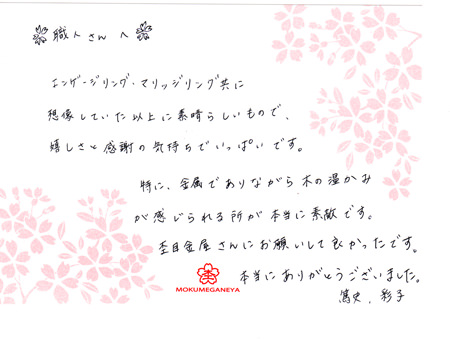 職人さんへ
エンゲージリング・マリッジリング共に
想像していた以上に素晴らしいもので、
嬉しさと感謝の気持ちでいっぱいです。
特に、金属でありながら木の温かみ
が感じられる所が本当に素敵です。
杢目金屋さんにお願いして良かったです。
本当にありがとうございました。
篤史、彩子
MOKUMEGANEYA